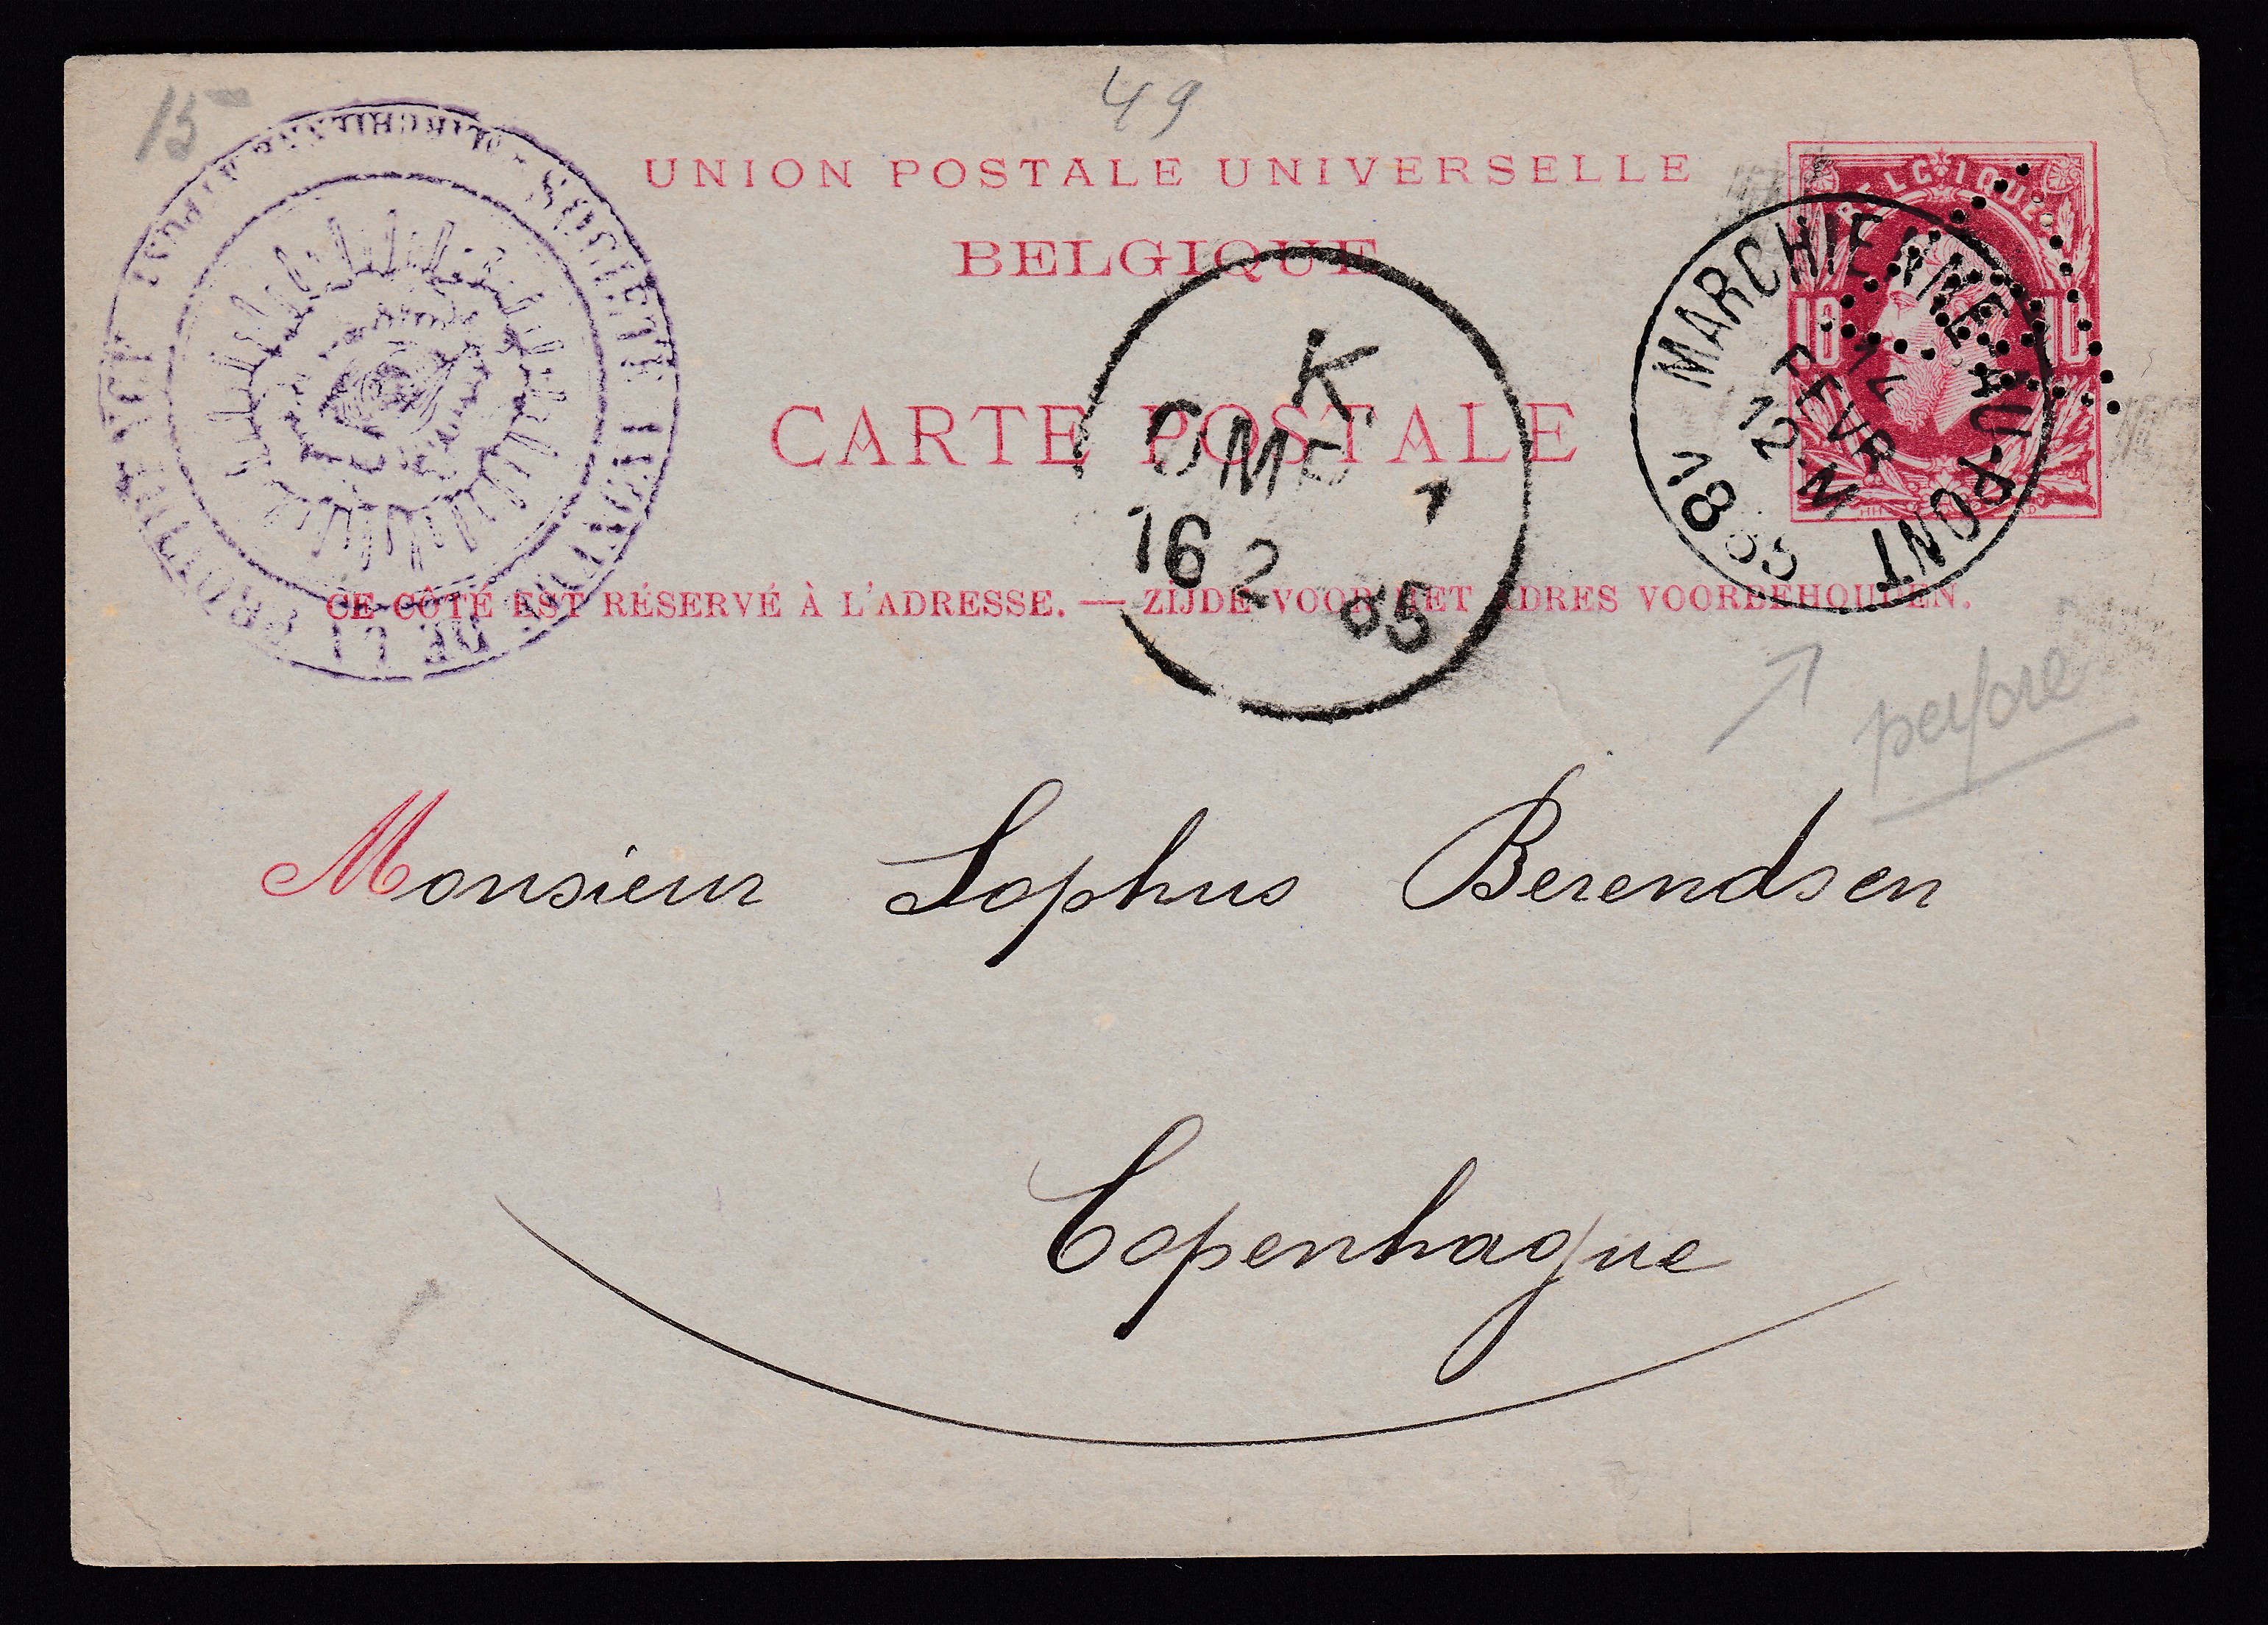 15
49
UNION POSTALE UNIVERSELLE
BELGIQUE
CARTE POSTALE
CE CÔTÉ EST RÉSERVÉ À L'ADRESSE. — ZIJDE VOOR HET ADRES VOORBEHOUDEN.
BELGIQUE
10 10
MARCHIENNE-AU-PONT
FEVR
12-M
K.
OMB.
1
16 2 85
SOCIETE ANONYME
DE LA PROVIDENCE
perfore
Monsieur Sophus Berendsen
Copenhague